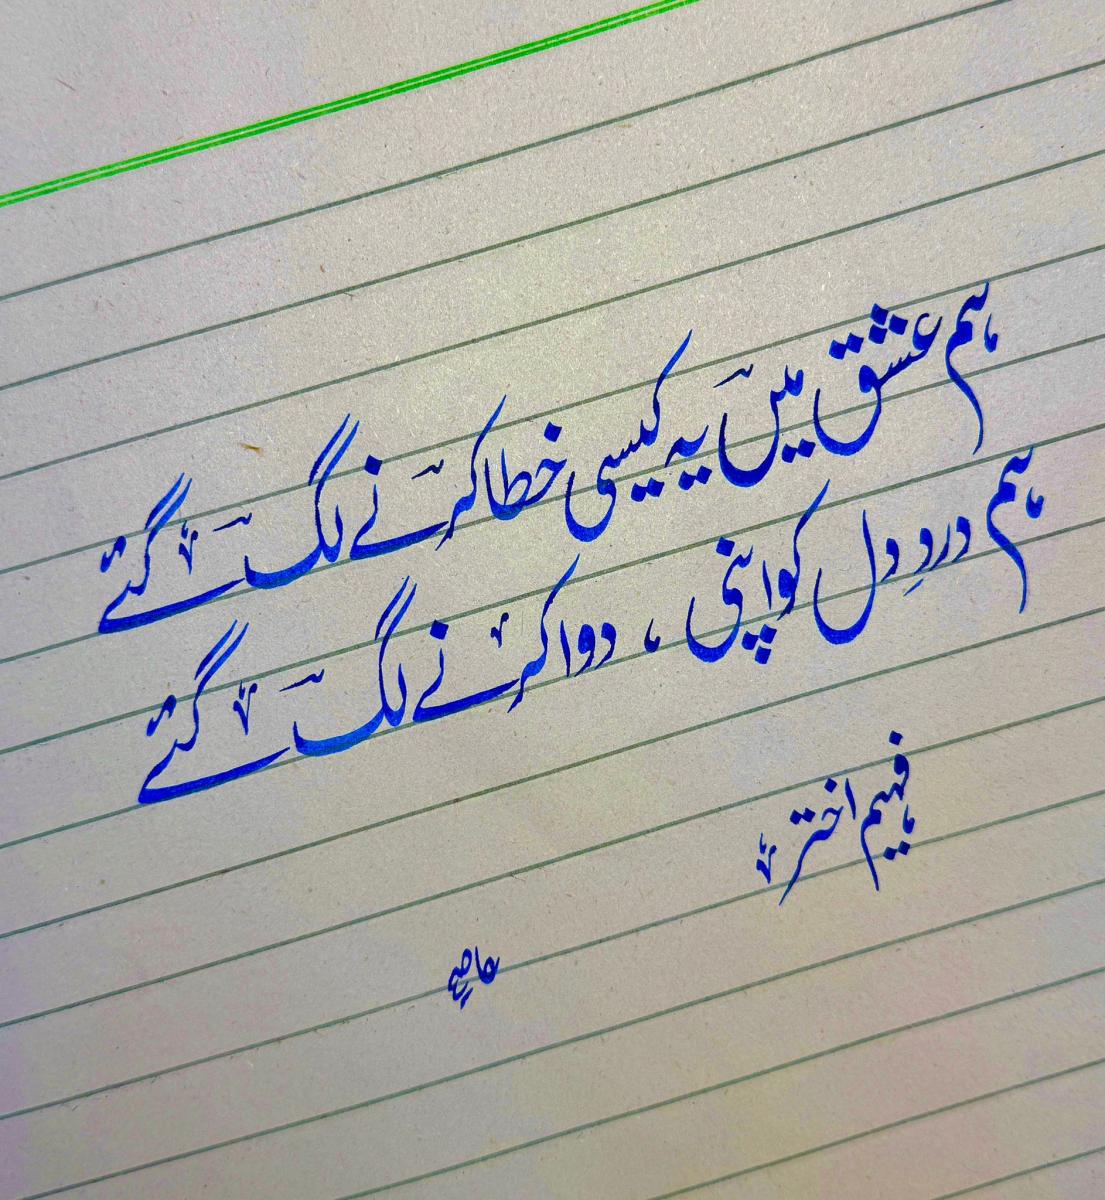 ہم عشق میں یہ کیسی خطا کرنے لگ گئے
ہم دردِ دل کو اپنی ، دوا کرنے لگ گئے
فہیم اختر